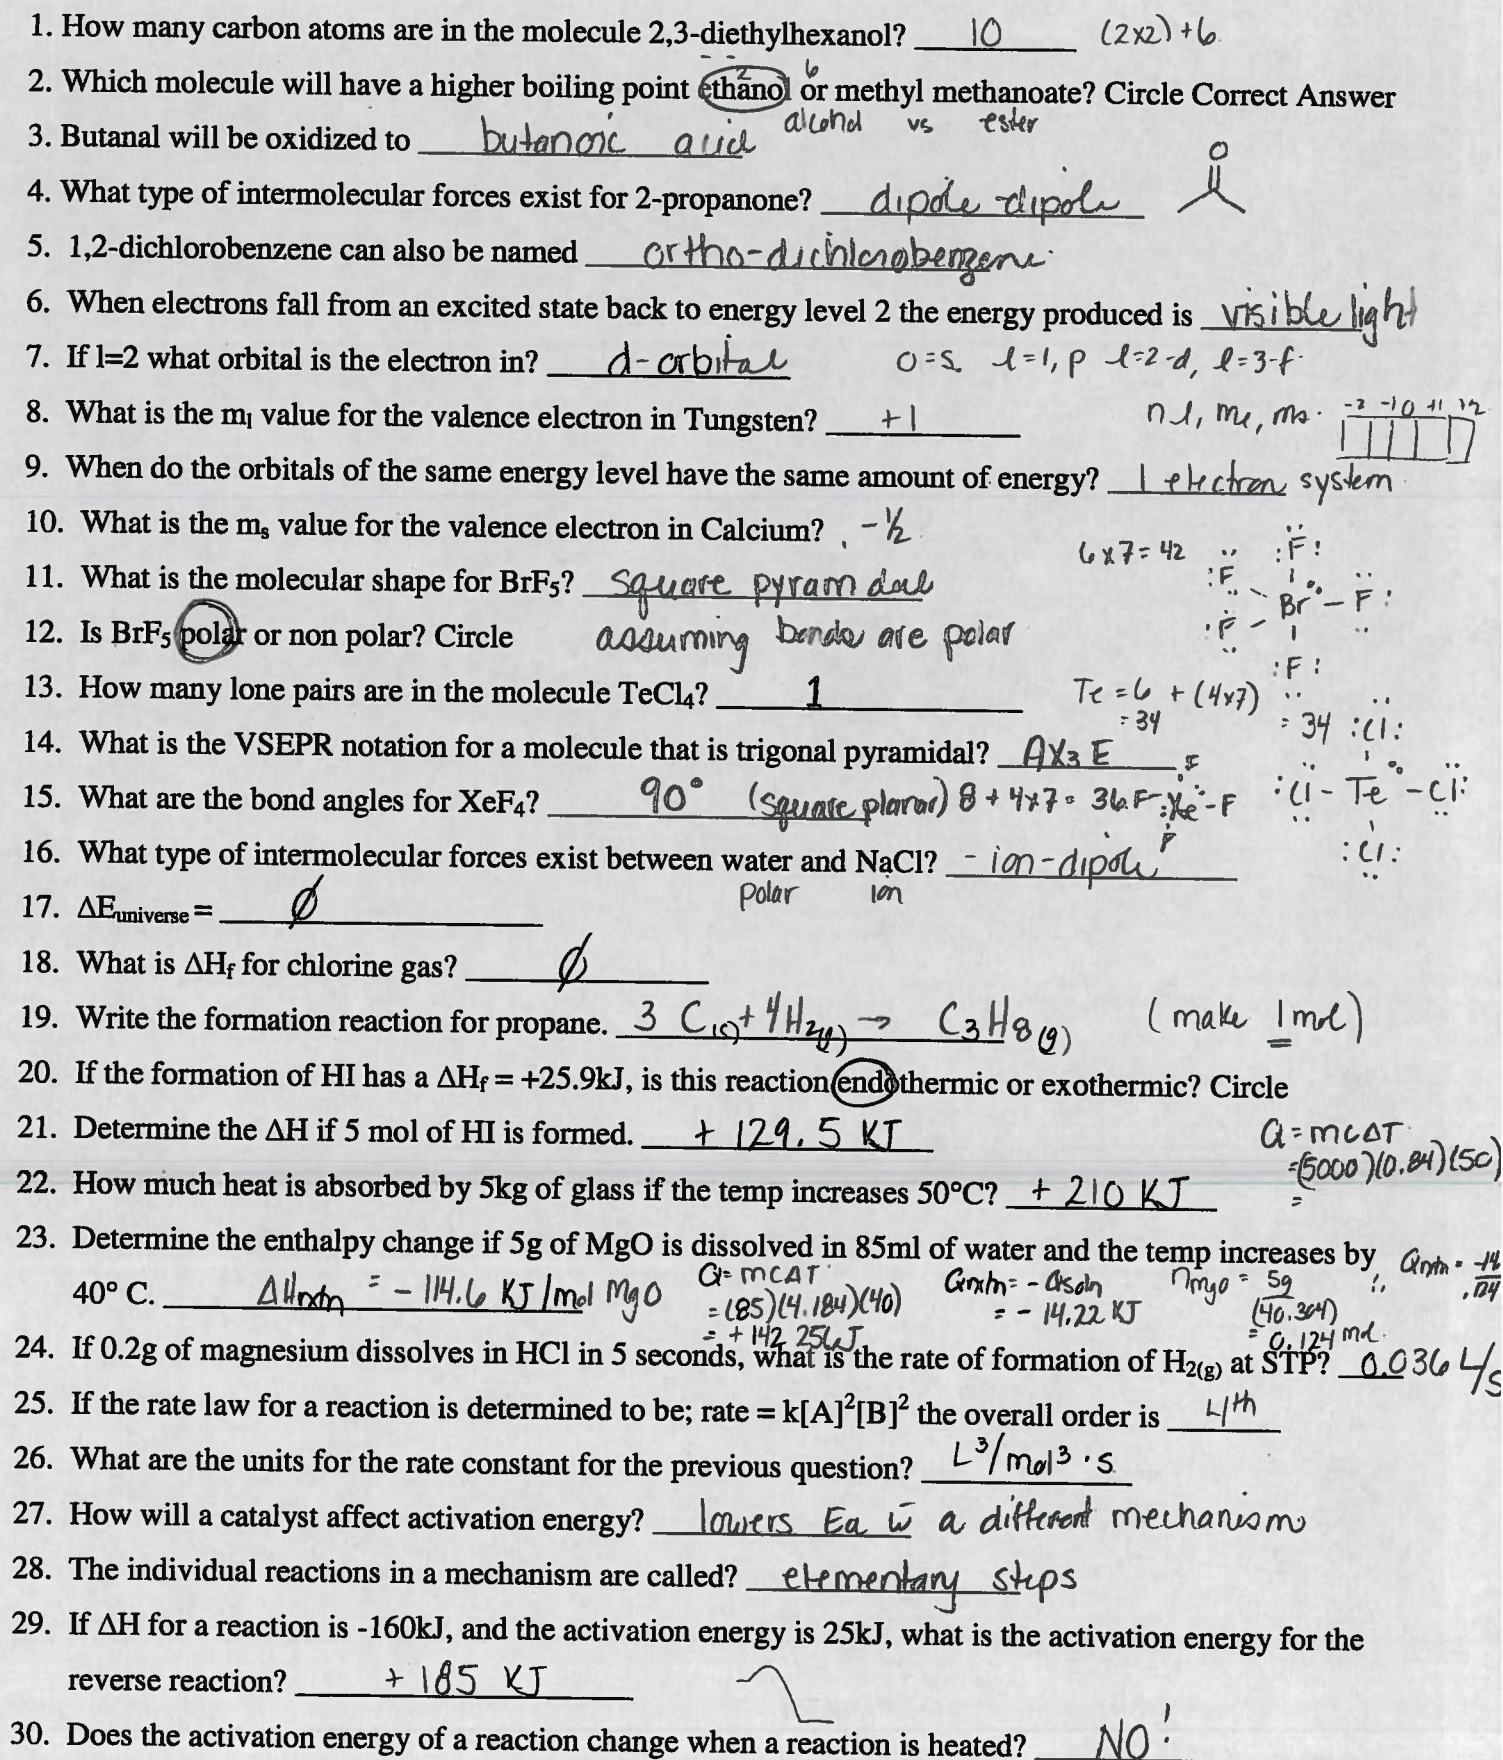 1. How many carbon atoms are in the molecule 2,3-diethylhexanol? 10 (2x2)+6
2. Which molecule will have a higher boiling point ethanol or methyl methanoate? Circle Correct Answer
2 6
alcohol vs ester
3. Butanal will be oxidized to butanoic acid
O
4. What type of intermolecular forces exist for 2-propanone? dipole-dipole
5. 1,2-dichlorobenzene can also be named ortho-dichlorobenzene
6. When electrons fall from an excited state back to energy level 2 the energy produced is visible light
7. If l=2 what orbital is the electron in? d-orbital 0=s. l=1, p l=2-d, l=3-f
8. What is the mₗ value for the valence electron in Tungsten? +1 n l, mₗ, mₛ. -2 -1 0 +1 +2
9. When do the orbitals of the same energy level have the same amount of energy? 1 electron system
10. What is the mₛ value for the valence electron in Calcium? -½
6x7=42 :F:
11. What is the molecular shape for BrF₅? square pyramidal :F Br - F:
12. Is BrF₅ polar or non polar? Circle assuming bonds are polar :F -
:F:
13. How many lone pairs are in the molecule TeCl₄? 1 Te = 6 + (4x7)
= 34 = 34 :Cl:
14. What is the VSEPR notation for a molecule that is trigonal pyramidal? AX₃E
15. What are the bond angles for XeF₄? 90° (square planar) 8 + 4x7 = 36 F-Xe-F :Cl - Te - Cl:
F
:Cl:
16. What type of intermolecular forces exist between water and NaCl? - ion-dipole
polar ion
17. ΔEuniverse = ∅
18. What is ΔHf for chlorine gas? ∅
19. Write the formation reaction for propane. 3 C(s) + 4H₂(g) → C₃H₈(g) (make 1 mol)
20. If the formation of HI has a ΔHf = +25.9kJ, is this reaction endothermic or exothermic? Circle
21. Determine the ΔH if 5 mol of HI is formed. + 129.5 KJ
Q = mcΔT
=(5000)(0.84)(50)
=
22. How much heat is absorbed by 5kg of glass if the temp increases 50°C? + 210 KJ
23. Determine the enthalpy change if 5g of MgO is dissolved in 85ml of water and the temp increases by
40° C. ΔHrxtn = - 114.6 KJ/mol MgO
Q= mcΔT
= (85)(4.184)(40)
= + 14225.6J
Qrxtn= - Qsoln
= - 14.22 KJ
nMgO = 5g
(40.304)
= 0.124 mol.
∴ Qrxtn = -14
.124
24. If 0.2g of magnesium dissolves in HCl in 5 seconds, what is the rate of formation of H₂(g) at STP? 0.036 L/s
25. If the rate law for a reaction is determined to be; rate = k[A]²[B]² the overall order is 4th
26. What are the units for the rate constant for the previous question? L³/mol³·s
27. How will a catalyst affect activation energy? lowers Ea w̄ a different mechanism
28. The individual reactions in a mechanism are called? elementary steps
29. If ΔH for a reaction is -160kJ, and the activation energy is 25kJ, what is the activation energy for the
reverse reaction? + 185 KJ
30. Does the activation energy of a reaction change when a reaction is heated? NO!